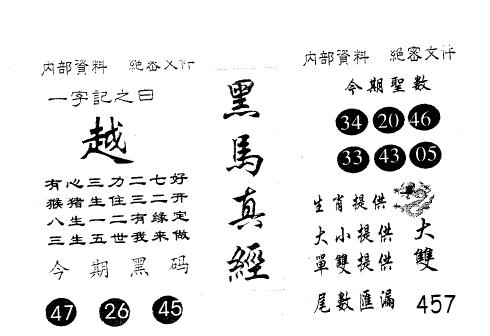 内部資料 絕密文件
一字記之曰
越
有心三力二七好
猴猪生住三二开
八生一二有缘定
三生五世我來做
今期黑码
47 26 45
黑馬真經
内部資料 絕密文件
今期聖數
34 20 46
33 43 05
生肖提供
大小提供 大
單雙提供 雙
尾數匯漏 457